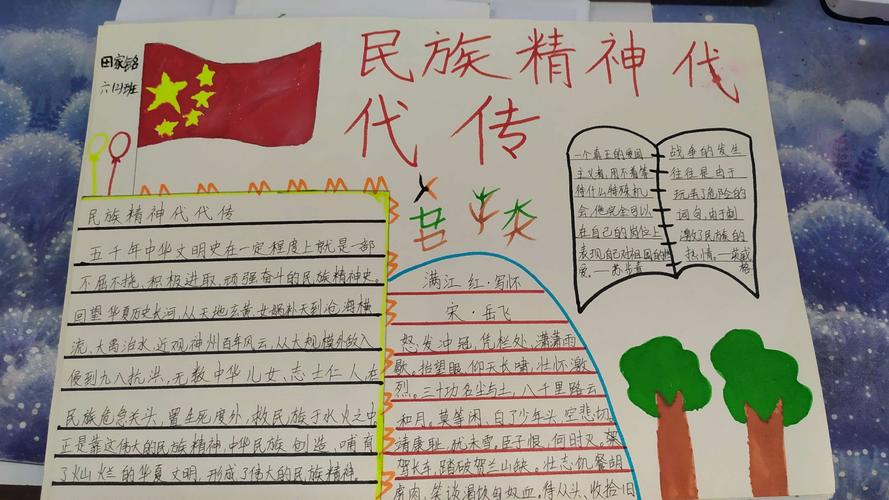 田家铭
六(2)班
民族精神代
代传
民族精神代代传
五千年中华文明史在一定程度上就是一部
不屈不挠、积极进取、顽强奋斗的民族精神史。
回望华夏历史长河,从天地玄黄、女娲补天到沧海横
流、大禹治水,近观神州百年风云,从大规模外敌入
侵到九八抗洪,无数中华儿女、志士仁人在
民族危急关头,置生死度外,救民族于水火之中
正是靠这伟大的民族精神,中华民族创造、哺育
了灿烂的华夏文明,形成了伟大的民族精神。
满江红·写怀
宋·岳飞
怒发冲冠,凭栏处、潇潇雨
歇。抬望眼,仰天长啸,壮怀激
烈。三十功名尘与土,八千里路云
和月。莫等闲、白了少年头,空悲切。
靖康耻,犹未雪,臣子恨,何时灭。驾
驾长车,踏破贺兰山缺。壮志饥餐胡
虏肉,笑谈渴饮匈奴血。待从头、收拾旧
一个真正的爱国
主义者,用不着等
待什么特殊机
会,他完全可以
在自己的岗位上
表现自己对祖国的热
爱。——苏步青
战争的发生
往往是由于
玩弄了危险的
词句,由于刺
激了民族的
热情。——英